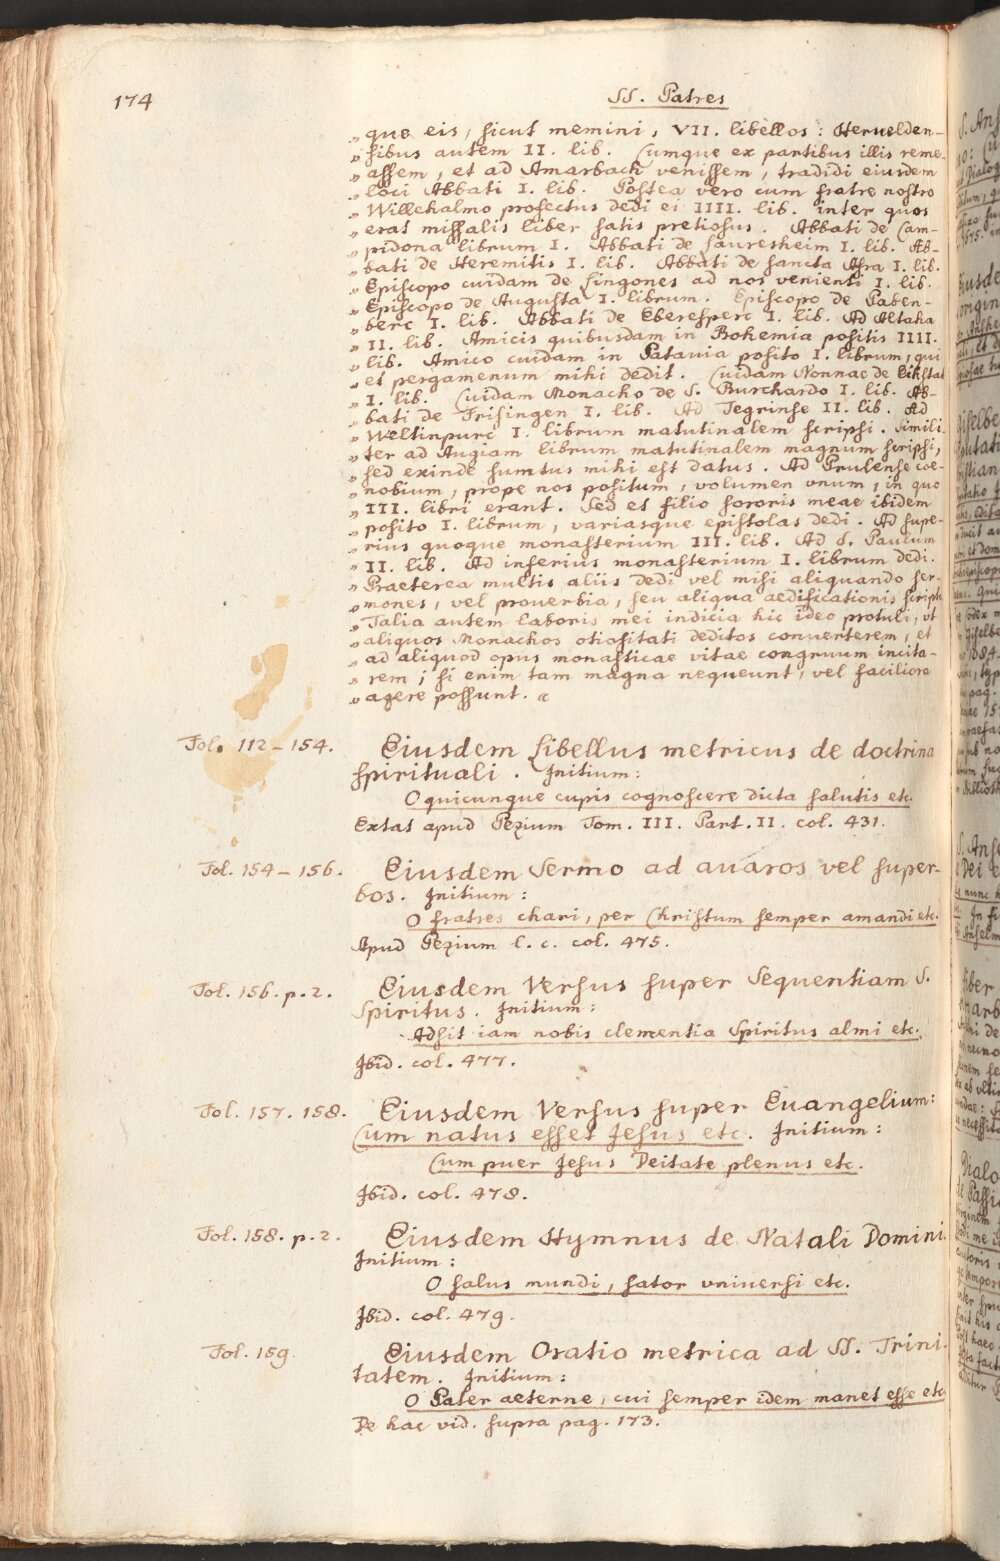 174
SS. Patres
„ que eis, sicut memini, VII. libellos: Heruelden-
„ sibus autem II. lib. Cumque ex partibus illis reme-
„ assem, et ad Amarbach venissem, tradidi eiusdem
„ loci Abbati I. lib. Postea vero cum fratre nostro
„ Willehalmo profectus dedi ei IIII. lib. inter quos
„ erat missalis liber satis pretiosus. Abbati de Cam-
„ pidona librum I. Abbati de Lauresheim I. lib. Ab-
„ bati de Heremitis I. lib. Abbati de sancta Afra I. lib.
„ Episcopo cuidam de Lingones ad nos venienti I. lib.
„ Episcopo de Augusta I. librum. Episcopo de Paben-
„ berc I. lib. Abbati de Ebersperc I. lib. Ad Altaha
„ II. lib. Amicis quibusdam in Bohemia positis IIII.
„ lib. Amico cuidam in Patauia posito I. librum, qui
„ et pergamenum mihi dedit. Cuidam Nonnae de Eikstat
„ I. lib. Cuidam Monacho de S. Burchardo I. lib. Ab-
„ bati de Frisingen I. lib. Ad Tegrinse II. lib. Ad
„ Weltinpurc I. librum matutinalem scripsi. Simili-
„ ter ad Augiam librum matutinalem magnum scripsi,
„ sed exinde sumtus mihi est datus. Ad Prulense coe-
„ nobium, prope nos positum, volumen vnum, in quo
„ III. libri erant. Sed et filio sororis meae ibidem
„ posito I. librum, variasque epistolas dedi. Ad supe-
„ rius quoque monasterium III. lib. Ad S. Paulum
„ II. lib. Ad inferius monasterium I. librum dedi.
„ Praeterea multis aliis dedi vel misi aliquando ser-
„ mones, vel prouerbia, seu aliqua aedificationis scripta
„ Talia autem laboris mei indicia hic ideo protuli, vt
„ aliquos Monachos otiositati deditos conuerterem, et
„ ad aliquod opus monasticae vitae congruum incita-
„ rem; si enim tam magna nequeunt, vel faciliora
„ agere possunt.
Fol. 112-154. Eiusdem Libellus metricus de doctrina
spirituali. Initium:
O quicunque cupis cognoscere dicta salutis etc.
Extat apud Pezium Tom. III. Part. II. col. 431.
Fol. 154-156. Eiusdem Sermo ad auaros vel super-
bos. Initium:
O fratres chari, per Christum semper amandi etc.
Apud Pezium l. c. col. 475.
Fol. 156. p. 2. Eiusdem Versus super Sequentiam S.
Spiritus. Initium:
Adsit iam nobis clementia Spiritus almi etc.
Ibid. col. 477.
Fol. 157. 158. Eiusdem Versus super Euangelium:
Cum natus esset Jesus etc. Initium:
Cum puer Jesus Deitate plenus etc.
Ibid. col. 478.
Fol. 158. p. 2. Eiusdem Hymnus de Natali Domini.
Initium:
O salus mundi, sator vniuersi etc.
Ibid. col. 479.
Fol. 159. Eiusdem Oratio metrica ad SS. Trini-
tatem. Initium:
O Pater aeterne, cui semper idem manet esse etc
De hac vid. supra pag. 173.